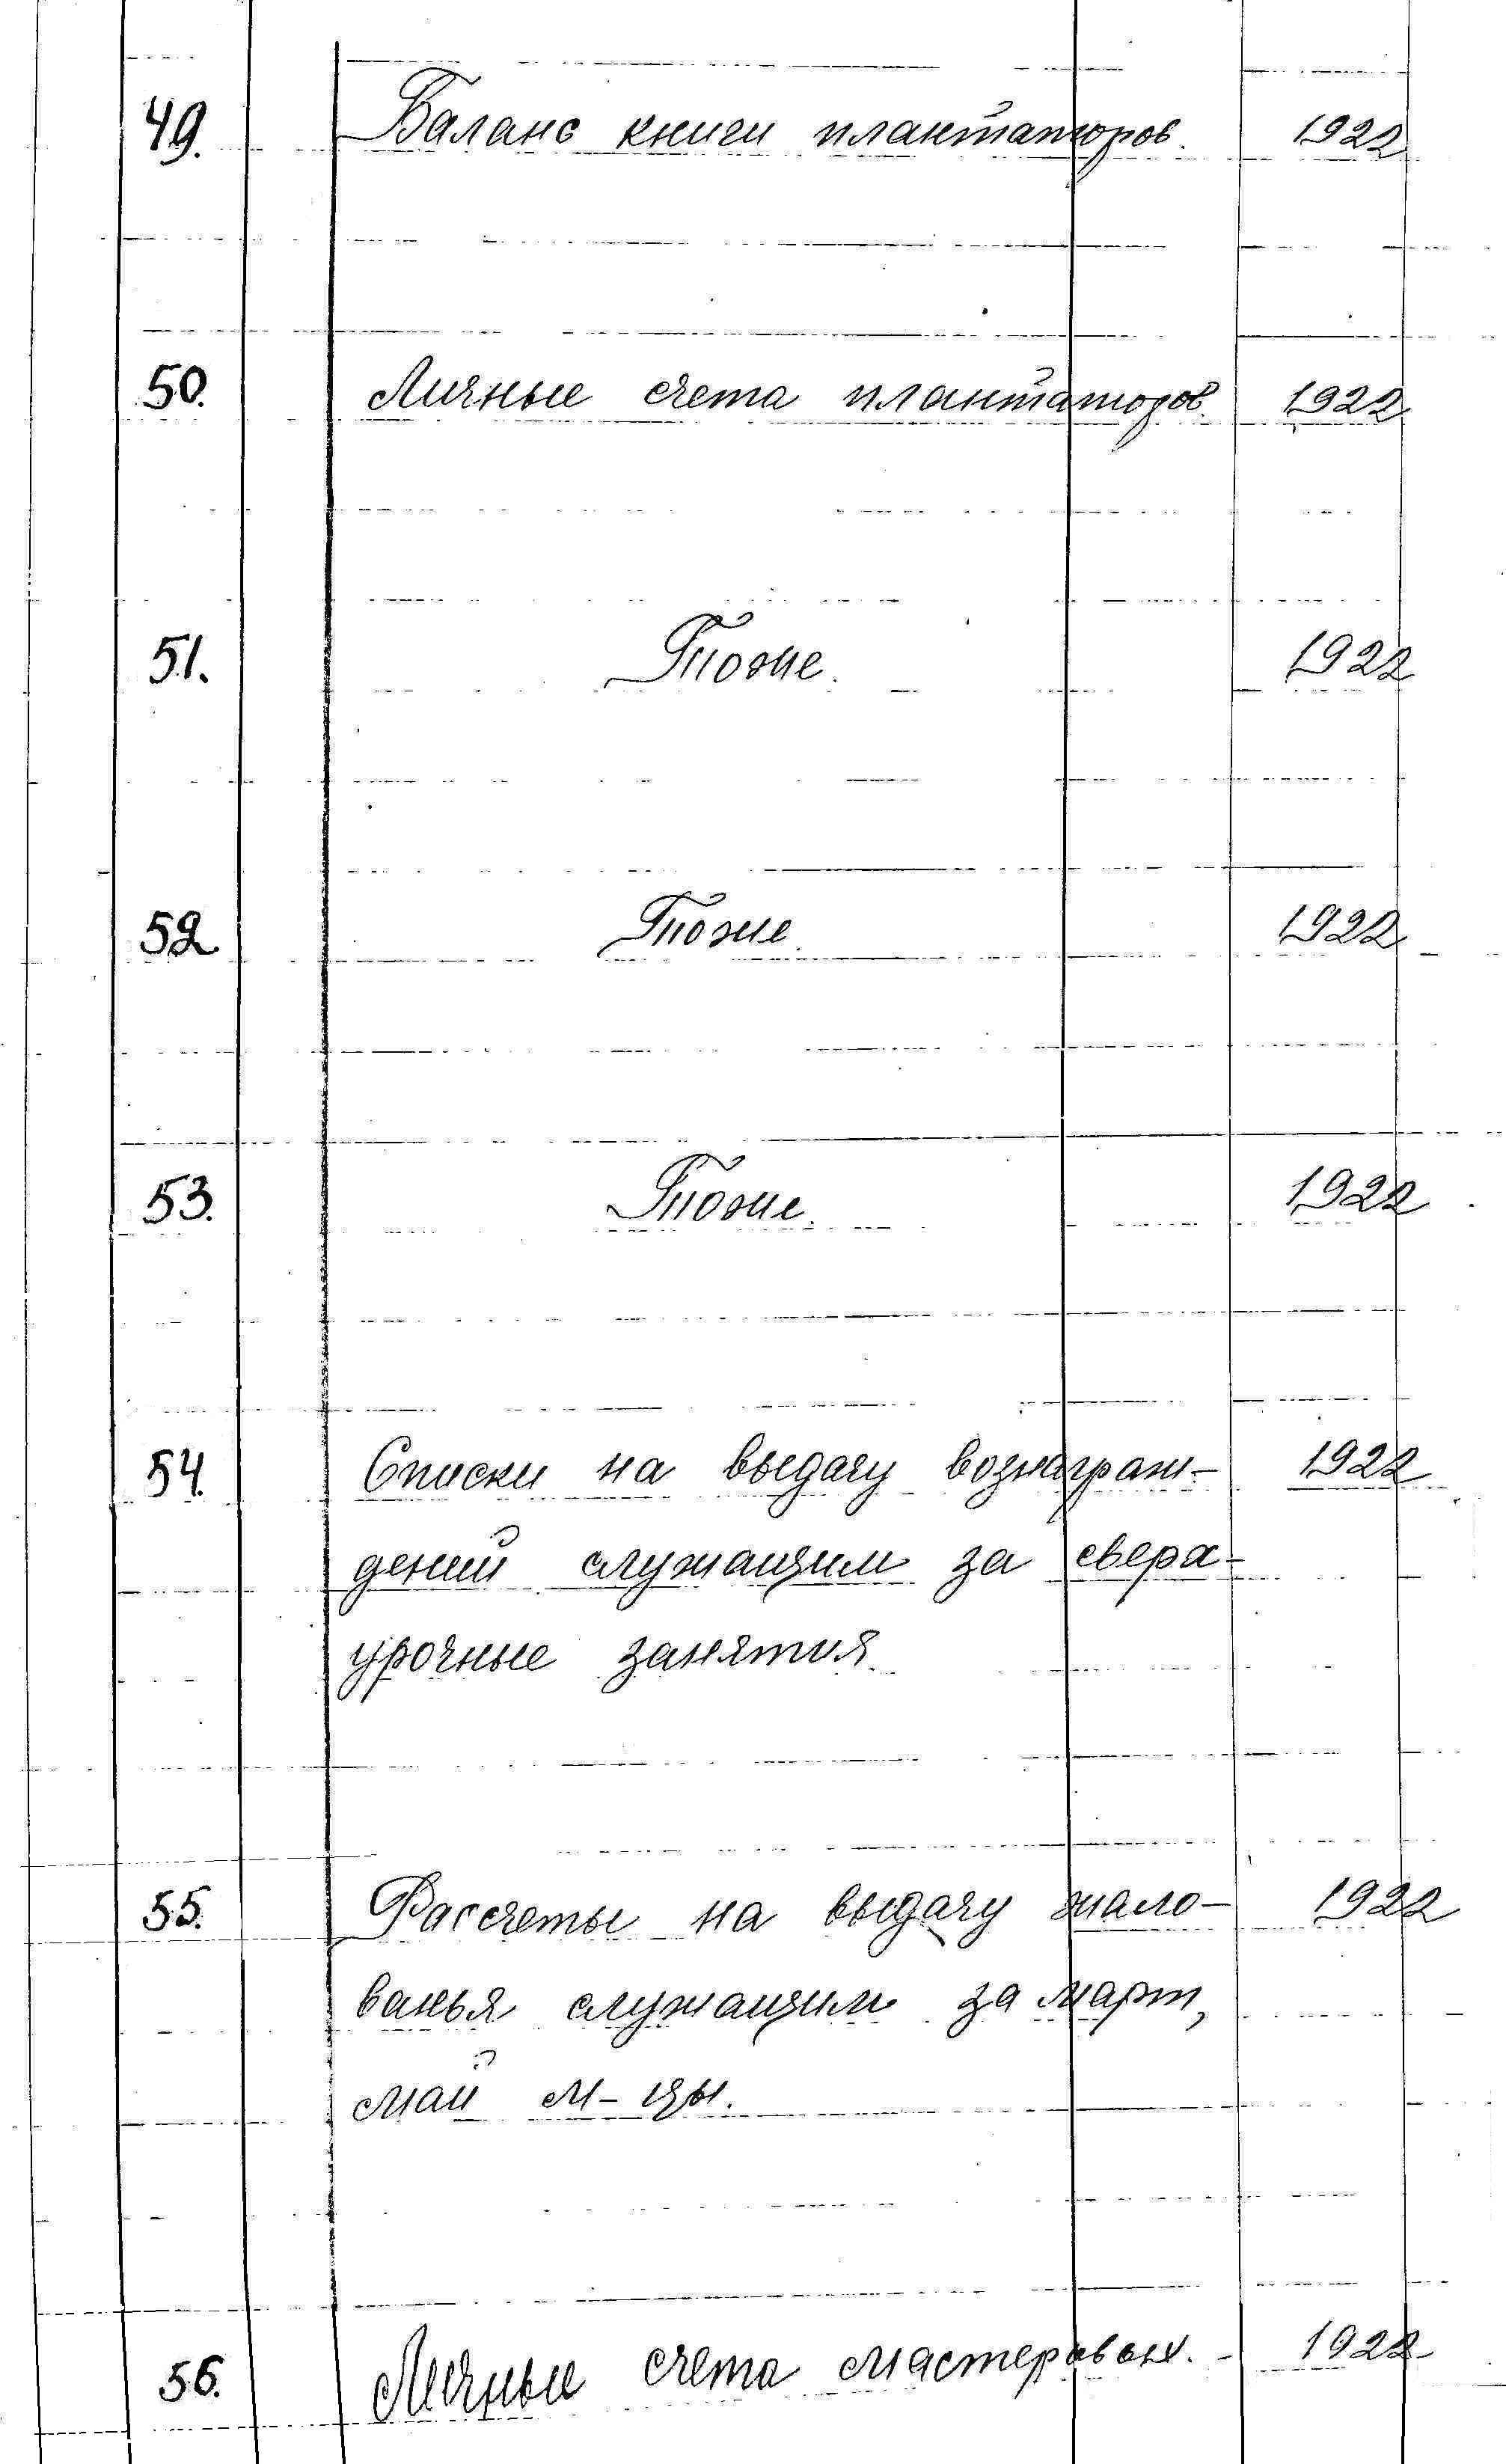 49. Баланс книги плантаторов. 1922
50. Личные счета плантаторов. 1922
51. Тоже. 1922
52 Тоже. 1922
53. Тоже. 1922
54. Списки на выдачу вознаграж- 1922
дений служащим за сверх-
урочные занятия.
55. Рассчеты на выдачу жало- 1922
ванья служащим за март,
май м-цы.
56. Личные счета мастеровых. 1922